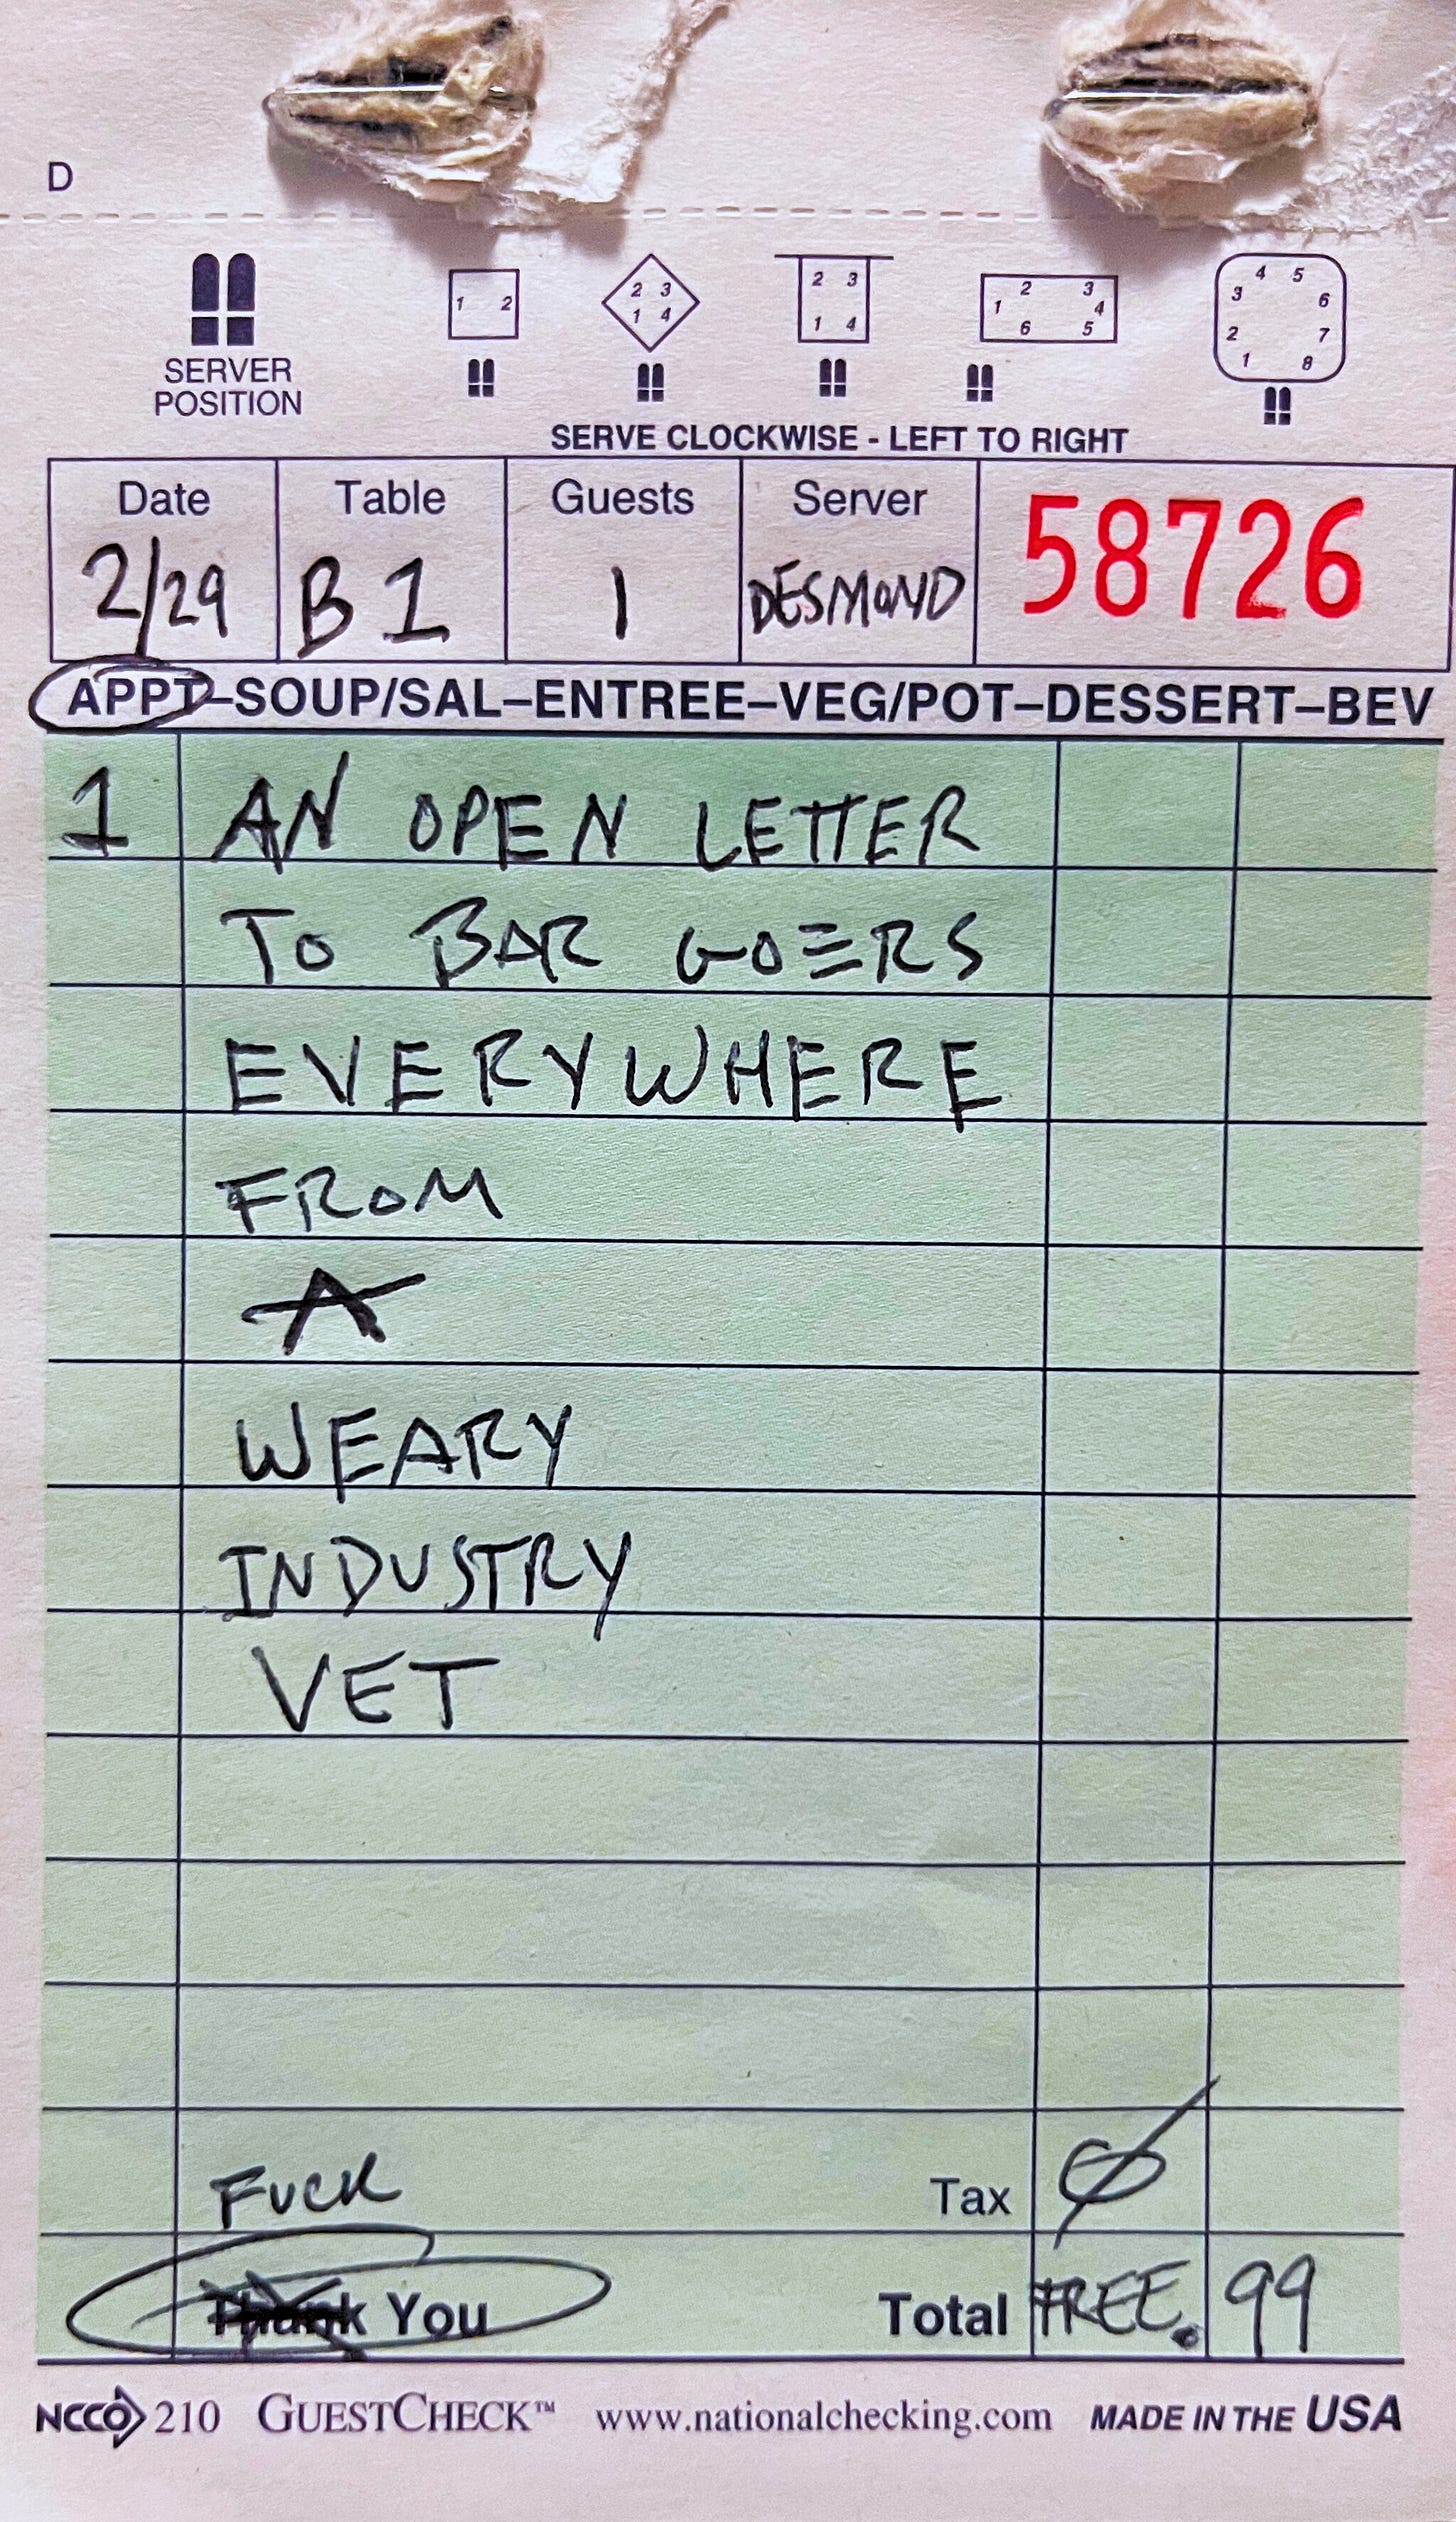 D
SERVER
POSITION
1 2
2 3
1 4
2 3
1 4
2 3
1 4
6 5
4 5
3 6
2 7
1 8
SERVE CLOCKWISE - LEFT TO RIGHT
Date Table Guests Server 58726
2/29 B1 1 DESMOND
APPT–SOUP/SAL–ENTREE–VEG/POT–DESSERT–BEV
1 AN OPEN LETTER
TO BAR GOERS
EVERYWHERE
FROM
A
WEARY
INDUSTRY
VET
FUCK Tax Ø
Thank You Total FREE. 99
NCCO 210 GUESTCHECK™ www.nationalchecking.com MADE IN THE USA